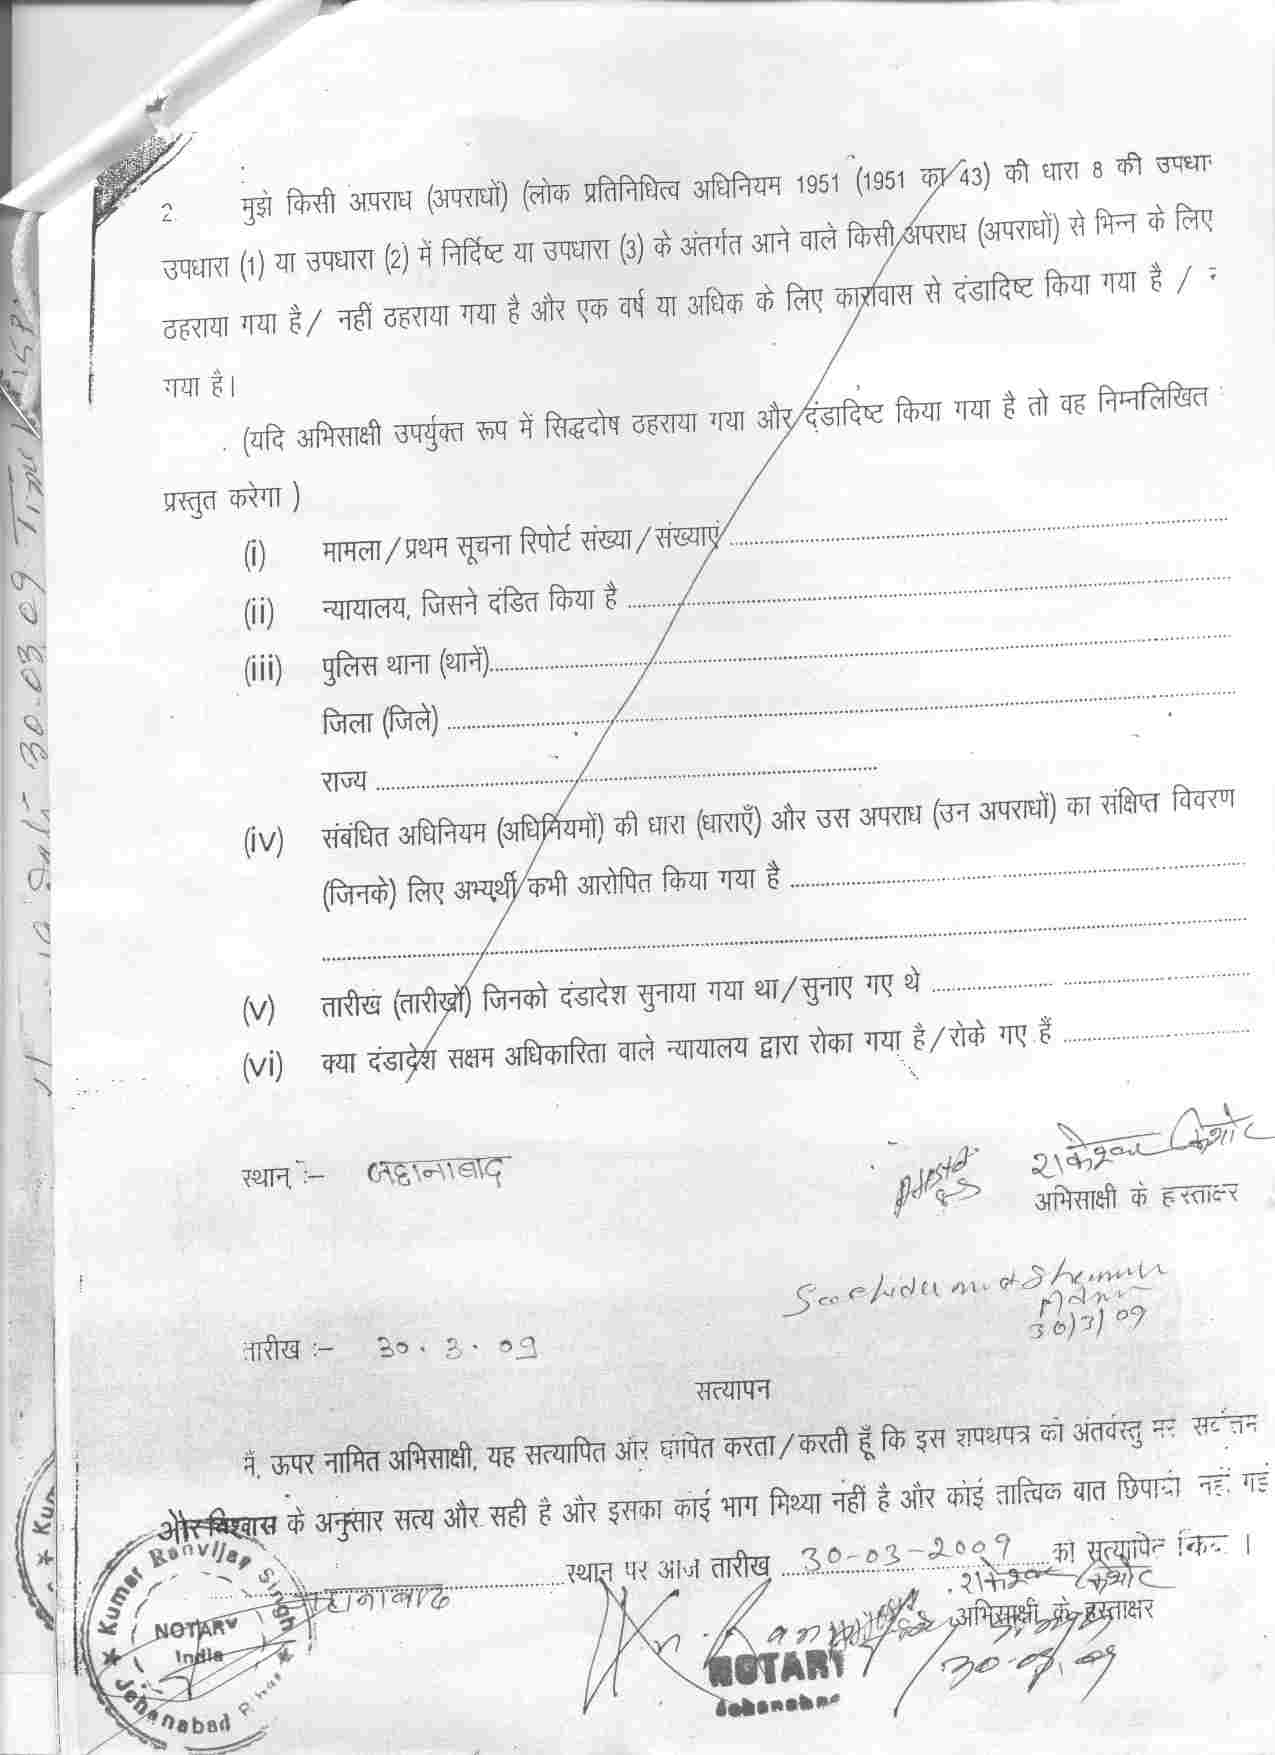 2. मुझे किसी अपराध (अपराधों) (लोक प्रतिनिधित्व अधिनियम 1951 (1951 का 43) की धारा 8 की उपधा
उपधारा (1) या उपधारा (2) में निर्दिष्ट या उपधारा (3) के अंतर्गत आने वाले किसी अपराध (अपराधों) से भिन्न के लिए
ठहराया गया है / नहीं ठहराया गया है और एक वर्ष या अधिक के लिए कारावास से दंडादिष्ट किया गया है /
गया है।
(यदि अभिसाक्षी उपर्युक्त रूप में सिद्धदोष ठहराया गया और दंडादिष्ट किया गया है तो वह निम्नलिखित
प्रस्तुत करेगा )
(i) मामला / प्रथम सूचना रिपोर्ट संख्या / संख्याएं
(ii) न्यायालय, जिसने दंडित किया है
(iii) पुलिस थाना (थानें)
जिला (जिले)
राज्य
(iv) संबंधित अधिनियम (अधिनियमों) की धारा (धाराएँ) और उस अपराध (उन अपराधों) का संक्षिप्त विवरण
(जिनके) लिए अभ्यर्थी कभी आरोपित किया गया है
(v) तारीख (तारीखों) जिनको दंडादेश सुनाया गया था / सुनाए गए थे
(vi) क्या दंडादेश सक्षम अधिकारिता वाले न्यायालय द्वारा रोका गया है / रोके गए हैं
स्थान :- जहानाबाद
राकेश्वर किशोर
अभिसाक्षी के हस्ताक्षर
30/3/09
तारीख :- 30.3.09
सत्यापन
मैं, ऊपर नामित अभिसाक्षी, यह सत्यापित और घोषित करता / करती हूँ कि इस शपथपत्र की अंतर्वस्तु मेरे सर्वोत्तम
और विश्वास के अनुसार सत्य और सही है और इसका कोई भाग मिथ्या नहीं है और कोई तात्विक बात छिपायी नहीं गई
जहानाबाद स्थान पर आज तारीख 30-03-2009 को सत्यापित किया ।
राकेश्वर किशोर
अभिसाक्षी के हस्ताक्षर
30-03.09
NOTARY
Jehanabad
Kumar Ranvijay Singh
NOTARY
India
Jehanabad
30-03.09
★ Kum